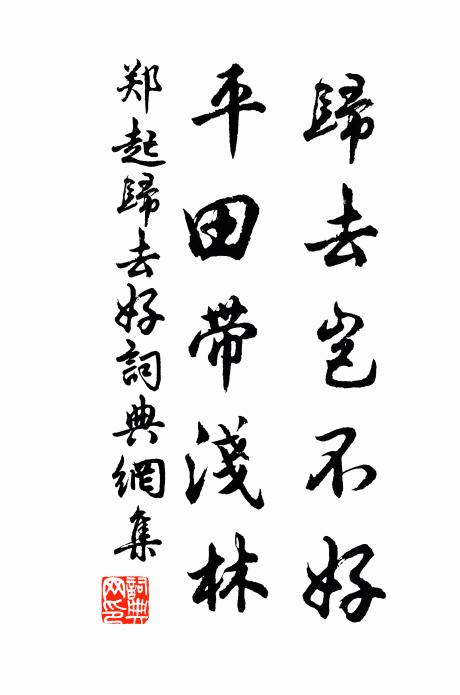 歸去豈不好
平田带淺林
郑起歸去好詞典網集
詞典
网印